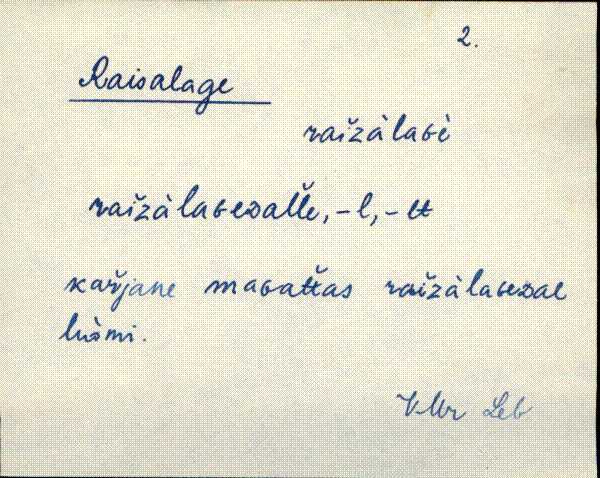 2.
Raisalage
raižàlaɢè
raižàlaɢeᴅalle, -l, -lt
karjane maɢattas raižàlaɢeᴅal
lùsmi.
V-Mr Leb